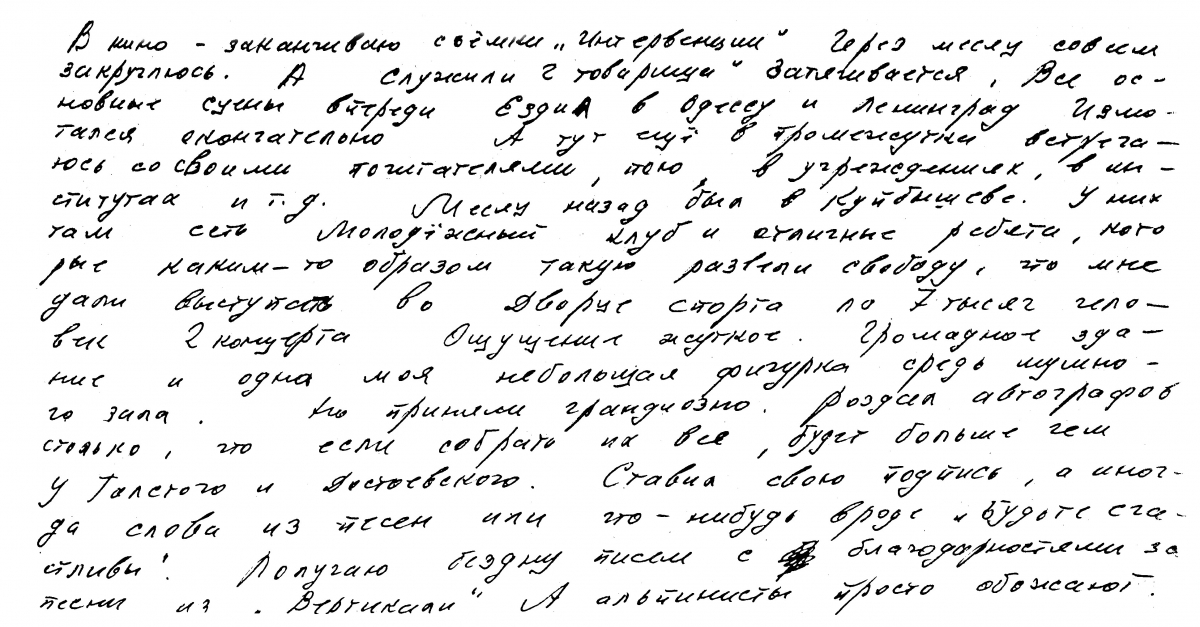 В кино - заканчиваю съёмки „Интервенции" Через месяц совсем
закруглюсь. А служили 2 товарища" Затягивается, Все ос-
новные сцены впереди Ездил в Одессу и Ленинград Измо-
тался окончательно А тут ещё в промежутки встреча-
юсь со своими почитателями, пою, в учреждениях, в ин-
ститутах и т.д. Месяц назад был в Куйбышеве. У них
там есть Молодёжный клуб и отличные ребята, кото
рые каким-то образом такую развели свободу, что мне
дали выступать во Дворце спорта по 7 тысяч чело-
век 2 концерта Ощущение жуткое. Громадное зда-
ние и одна моя небольшая фигурка средь шумно-
го зала. Но приняли грандиозно. Роздал автографов
столько, что если собрать их все, будет больше чем
у Толстого и Достоевского. Ставил свою подпись, а иног-
да слова из песен или что-нибудь вроде „Будьте сча-
стливы! Получаю бездну писем с благодарностями за
песни из „Вертикали" А альпинисты просто обожают.